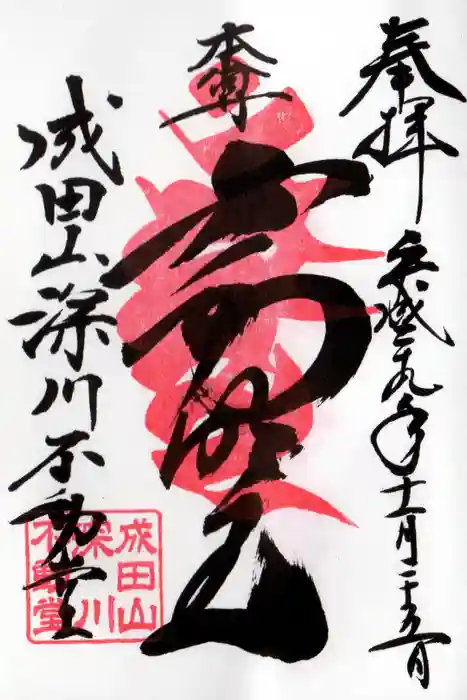 奉拝 平成二九年十一月二十五日
本尊
成田山深川不動堂
成田山
深川
不動堂